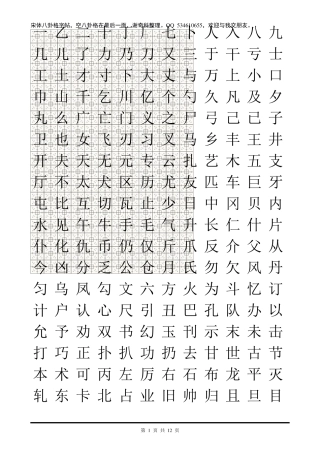 宋体八卦格字帖，空八卦格在最后一面。谢奇辑整理。QQ 534610655，欢迎与我交朋友。
一乙二十丁厂七卜人入八九
几儿了力乃刀又三于干亏士
工土才寸下大丈与万上小口
巾山千乞川亿个勺久凡及夕
丸么广亡门义之尸弓己已子
卫也女飞刃习叉马乡丰王井
开夫天无元专云扎艺木五支
厅不太犬区历尤友匹车巨牙
屯比互切瓦止少日中冈贝内
水见午牛手毛气升长仁什片
仆化仇币仍仅斤爪反介父从
今凶分乏公仓月氏勿欠风丹
匀乌凤勾文六方火为斗忆订
计户认心尺引丑巴孔队办以
允予劝双书幻玉刊示末未击
打巧正扑扒功扔去甘世古节
本术可丙左厉右石布龙平灭
轧东卡北占业旧帅归且旦目
第 1 页 共 12 页